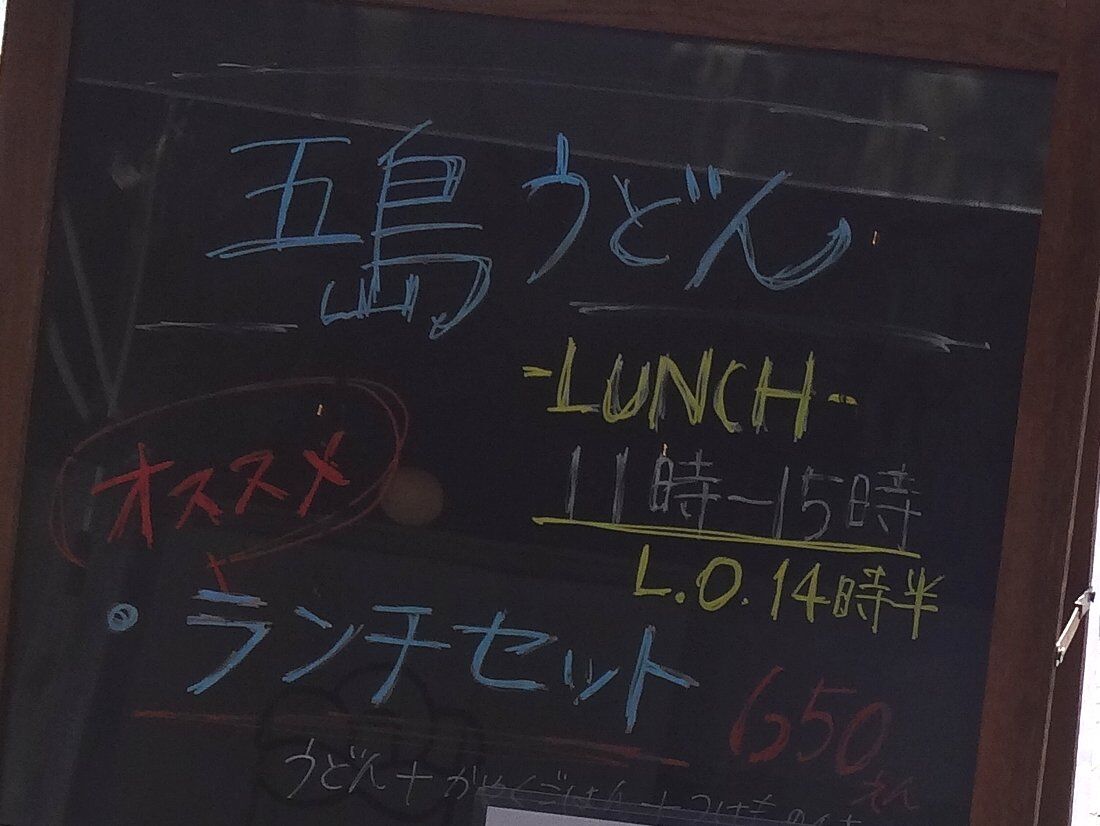 五島うどん
-LUNCH-
11時〜15時
L.O.14時半
オススメ
・ランチセット
650えん
うどん+かやくごはん+